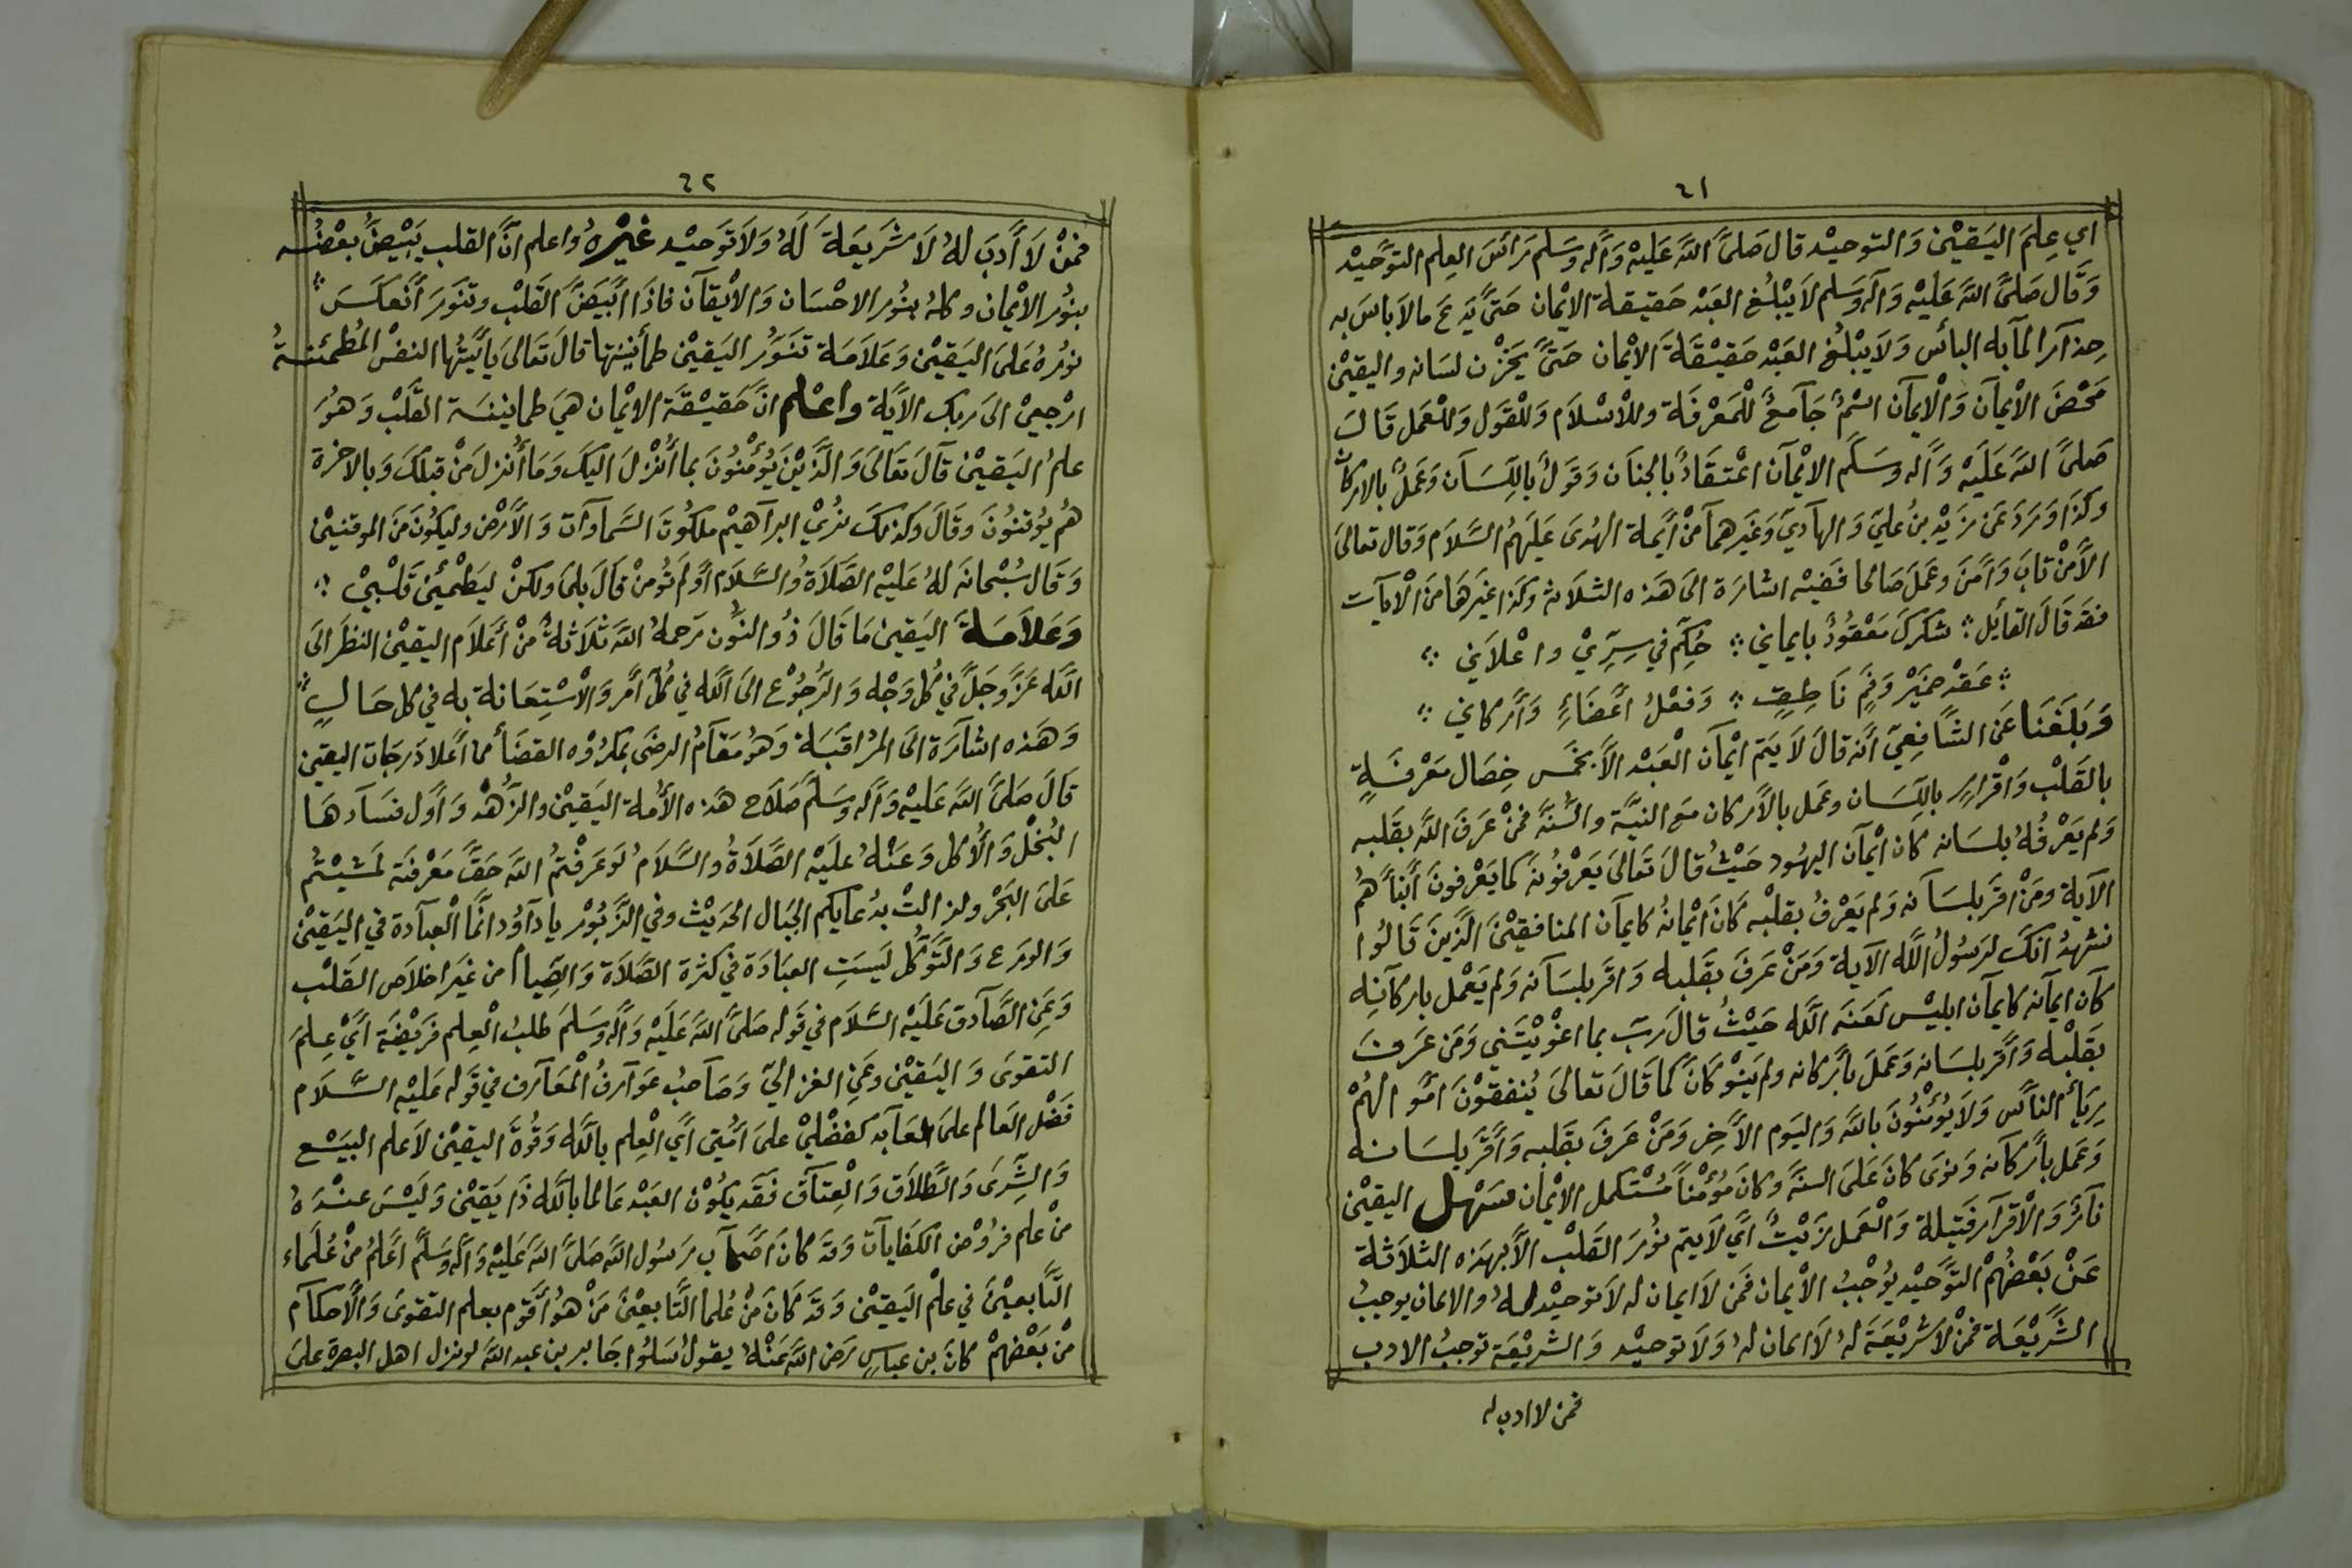 ٦١
اي عِلمَ اليَقيْن وَالتوحيْد قال صَلىَّ اللهَ عَليْه وَآلهِ وَسَلم رَائسَ العِلم التوَّحيْد
وَقَال صَلىَّ اللهَ عَليْه وَآله وَسَلم لاَ يَبْلُغ العَبْد حَقيقة الايْمان حَتىَّ يَدَع مالاَباسَ به
حِذآرَ المآبه البأس وَلاَيَبْلُغ العَبْد حَقيْقَة الايْمان حَتىَّ يَخزْن لسَانه واليقيْن
مَحْضَ الايْمآن وَالْايمآن اسْمُ جَآمعُ لْلمَعْرفَة وللاْسْلاَم وَللْقَول وَللعَمل قَالَ
صَلىَّ اللهَ عَلَيْه وَآله وسَلَم الايْمآن اعْتقَادُ بالجنَان وَقَولُ باللِّسَآن وَعَملُ بالاركان
وكذَا وَرَدَ عَن زَيْد بنُ عليَ وَالهآديَ وَغَيرَهمآ منْ أيِّمة الهُدىَ عَليَهُمُ السَّلاَم وَقال تعالىَ
الاَّ مَنْ تابَ وَآمَنَ وعَملَ صَالحا فَفيْه اشارَة الىَ هَذه الثلاَثه وكذا غيَرَهَا منَ الْآيآت
فقَد قَالَ القايَل ؛ شكركَ مَعْقُودُ بايماني ؛ حُكِّمَ في سِرِّيْ واعْلاَني ؛
؛ عَقدُ ضمَيْر وَفَمٍ نَاطِقٍ ؛ وَفعْلُ اَعْضَاءٍ وَأرْكاني ؛
وَبَلَغَنَا عَن الشَافعِيَ أنَه قالَ لاَ يَتمَ ايْمآن الْعَبْد الاَّ بخَمس خِصَال مَعْرفَةٍ
بالقَلْب وَاقْرارٍ باللِّسَان وعَمل بالأركان مَع النيَّة والسُّنَّه فَمنْ عَرَفَ اللهَ بقَلبه
وَلم يَعْرفُهُ بلسَانه كان ايْمآن اليهُود حَيْثُ قالَ تَعالىَ يَعْرفُونَه كما يَعْرفونَ أبنآهُم
الآية ومَنْ اقرَ بلسَآنه وَلم يَعْرفُ بقلبْه كَانَ ايْمانُهُ كايمآن المنافقيْنَ الَّذينَ قَالُوا
نشهدُ انكَ لرَسُولُ اللَّه الآية وَمَنْ عَرفَ بقَلبه وَاقَر بلسَآنه وَلم يَعْمل باركآنِه
كآن ايمآنه كايمآن ابليْس لَعَنَه اللَّه حَيْثُ قالَ رَبّ بما اغوَيْتَني وَمَن عَرفَ
بقَلبْه وَاَقر بلسَانه وَعَملَ بأركانه ولم يَنوْ كانَ كما قَالَ تعالىَ يُنفقوْنَ امْوَالهُمْ
رِيَاءَ الناَّس وَلاَيُؤمْنُونَ باللهَ وَاليَوم الآخِر وَمَنْ عَرفَ بقَلبه وَأقَّر بلسَانه
وَعَمل بأركآنه وَنوىَ كانَ عَلىَ السنَّه وكانَ مؤمْناً مُسْتكمل الايْمان سَهْل اليقيْن
نآرُ وَالْاقرآر فَتيلة وَالْعَمل زَيْتٌ أيَّ لاَيتم نوُرَ القَلبْ الاَّ بهذه الثلاَثة
عَنْ بَعْضهُمْ التوَّحيْد يوُجبُ الايْمان فَمَن لاَ ايمان له لاَ توحيْد لهُ والايمان يوجبُ
الشَّريْعَة فمنْ لاَ شريْعَةَ لهُ لاَ ايمان لهُ وَلاَ توحيْد وَالشريْعَة توجبُ الادب
فمن لا ادب له
٦٢
فمنْ لاَ أدبَ لهُ لاَ شَريَعَة لَهُ وَلاَ تَوَحيْد غيْرهُ واعلم انَّ القلب يَبْيضُّ بعْضُه
بنوُر الايْمان وكلهُ بنوُر الاحْسَان وَالايْقآن فاذَا ابَّيَضَّ القَلبْ وتنَوَرَ أنعَكَسَ
نوُرهُ عَلىَ اليَقيْن وَعَلاَمَة تنَوّرُ اليَقيْن طمأنينتها قالَ تَعَالىَ يأيَّتُها النفسُ المُطمئنةُ
ارْجعيْ الىَ ربك الآيَة واعْلم انَّ حَقيْقَة الايْمان هيَ طماينَنة القَّلبْ وَهوُرَ
علمُ اليَقيْن قَآلَ تعَالىَ وَالَّذيْنَ يُؤْمنُونَ بما أنْزلَ اليكَ وَمَا أُنزلَ مَنْ قبلكَ وَبالاخرة
هُم يُوقنوُنَ وَقَالَ وكذلكَ نرُيْ ابرآهيْم ملكوُتَ السَّمآوآت وَالأرْض وليكوُنَ منَ الموقنيْن
وَقَال سُبْحانَه لهُ عَليْه الصَّلاَةُ والسَّلاَم أوَلم تُومنْ قَالَ بلىَ ولكنْ ليَطْمئِنَ قَلْبيْ ؛
وَعَلاَمَة اليَقين مَا قَالَ ذُو النوُّن رَحمهُ اللهَ ثلاَثةُ منْ أعَلاَم اليقيْن النظَر الىَ
اللَّه عَزَّ وجَلَّ في كُل وَجْه وَالرجُوْع الىَ اللَّه في كُلّ أمَر وَالْاسْتِعَانة به في كل حَالٍ
وَهَذه اشآرَة الىَ المرُاقَبَة وَهوُ مَقَآم الرضَى بمكرُوْه القضَأ مما أعَلاَ دَرجَات اليقين
قَالَ صَلىَّ اللهَ عَليْه وَآله وسَلمَ صَلاَح هَذه الأمُة اليَقيْن والزُّهدْ وَأوَّل فسَآدهَا
البُخْل وَالأكل وَعَنْهُ عليَه الصَّلاَةُ والسَّلاَم لوَ عَرفْتمُ اللهَ حَقَّ مَعْرفَته لمَشيْتُم
عَلىَ البَحْر ولزالتْ بدُعايكم الجبَال الحَديْث وفي الزَّبوُر يا دآوُد انمَّا الْعبآدة في اليَقيْن
وَالورَع وَالتَوَكُّل لَيسَتِ العبَادَة في كثرة الصَّلاَة وَالصِّيام من غيَر اخلاَص القَلبْ
وَعَنِ الصَّآدق عَليَه السَّلاَم في قَوله صَلىَّ اللهَ عَليَه وَآله وسَلمَ طلبُ الْعِلم فَريْضَة أيَّ عِلمَ
التقوىَ وَاليَقيْن وعَنِ الغزاليّ وَصَآحبُ عَوآرفُ الْمعَآرف في قوَله عَليْه السَّلاَم
فَضْل العَالم علىَ العَآبد كفضْليْ علىَ أمَّتيَ أيَّ الْعِلم باللَّه وَقُوةَّ اليقيْن لاَ علم البيَع
وَالشِّرىَ وَالطَّلاَق وَالْعِتآق فقَد يكوُن العَبْد عَالما باللَّه ذَا يَقيْن وَليْسَ عنْدَهُ
منْ علم فروُض الكفايآت وَقد كانَ اصَحآب رَسوُل اللهَ صَلىَّ اللهَ عَليْه وَآله وَسَلمَّ اعَلمُ منْ عُلمَاء
التَّابعيْنَ في علمْ اليَقيْن وَقَد كَانَ منْ عُلمأ التَّابعيْن مَنْ هوُ أقَوم بعلم التقوىَ وَالأحكآم
منْ بَعْضهمْ كانَ بن عباسٍ رَضى اللهَ عَنْهُ يقولُ سَلوُا جَابر بن عبد اللهَ لو نزل اهل البصرة علىَ